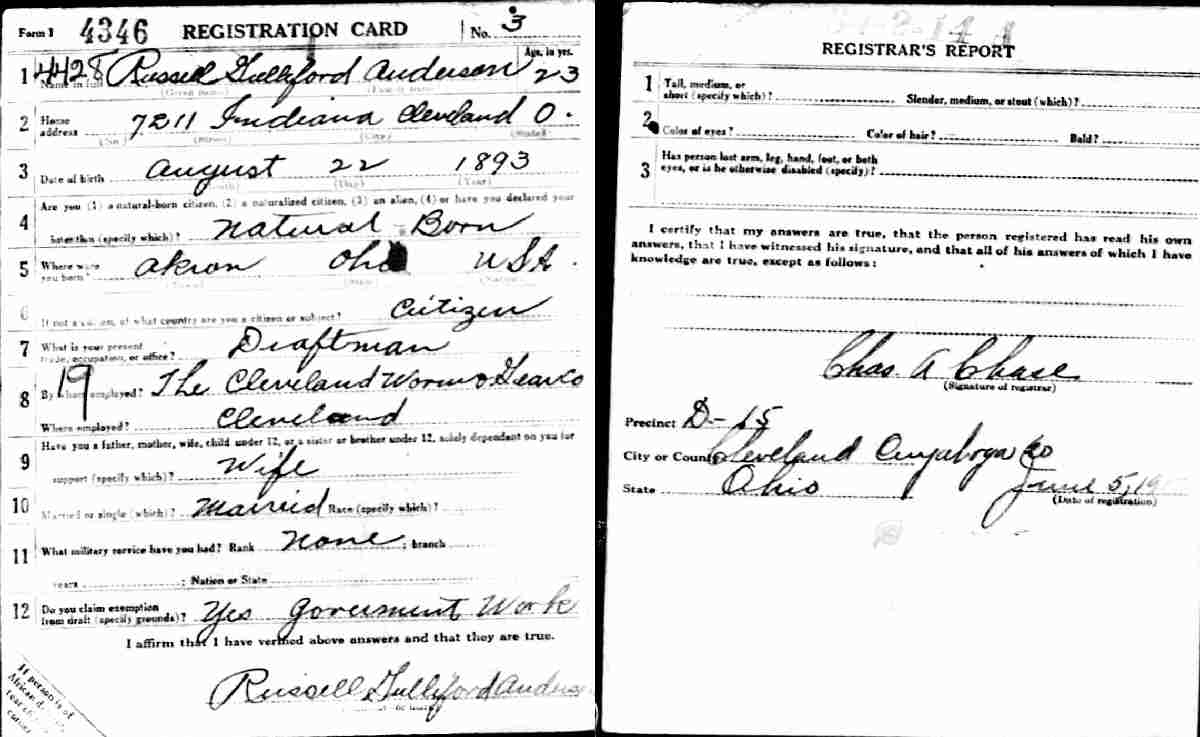 Form 1 4346 REGISTRATION CARD No. 3
Age, in yrs.
1 4428 Russell Gulliford Anderson 23
Name in full
(Given name) (Family name)
2 Home address 7211 Indiana Cleveland O.
(No.) (Street) (City) (State)
3 Date of birth August 22 1893
(Month) (Day) (Year)
Are you (1) a natural-born citizen, (2) a naturalized citizen, (3) an alien, (4) or have you declared your
4 intention (specify which)? Natural Born
5 Where were you born? Akron Ohio USA.
6 If not a citizen, of what country are you a citizen or subject? Citizen
7 What is your present trade, occupation, or office? Draftman
19
8 By whom employed? The Cleveland Worm & Gear Co
Where employed? Cleveland
Have you a father, mother, wife, child under 12, or a sister or brother under 12, solely dependent on you for
9 support (specify which)? Wife
10 Married or single (which)? Married Race (specify which)?
11 What military service have you had? Rank None; branch
years ; Nation or State
12 Do you claim exemption from draft (specify grounds)? Yes Goverment Work
I affirm that I have verified above answers and that they are true.
Russell Gulliford Anders
If person is of
African
corner
REGISTRAR'S REPORT
1 Tall, medium, or short (specify which)? Slender, medium, or stout (which)?
2 Color of eyes? Color of hair? Bald?
3 Has person lost arm, leg, hand, foot, or both eyes, or is he otherwise disabled (specify)?
I certify that my answers are true, that the person registered has read his own
answers, that I have witnessed his signature, and that all of his answers of which I have
knowledge are true, except as follows:
Chas. A Chase
(Signature of registrar)
Precinct D-15
City or County Cleveland Cuyahoga Co
State Ohio June 5, 19
(Date of registration)